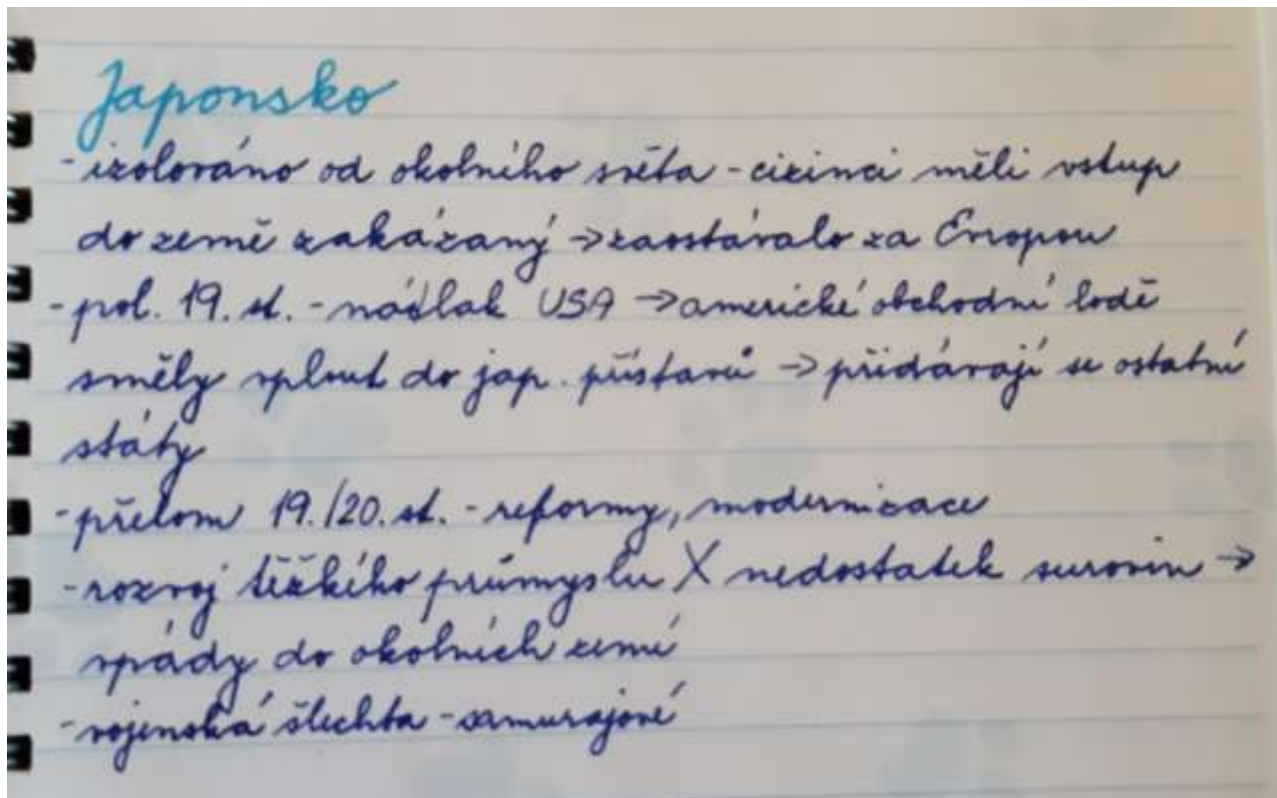 Japonsko
- izolováno od okolního světa - cizinci měli vstup
do země zakázaný → zaostávalo za Evropou
- pol. 19. st. - nátlak USA → americké obchodní lodě
směly vplout do jap. přístavů → přidávají se ostatní
státy
- přelom 19./20. st. - reformy, modernizace
- rozvoj těžkého průmyslu X nedostatek surovin →
vpády do okolních zemí
- vojenská šlechta - samurajové